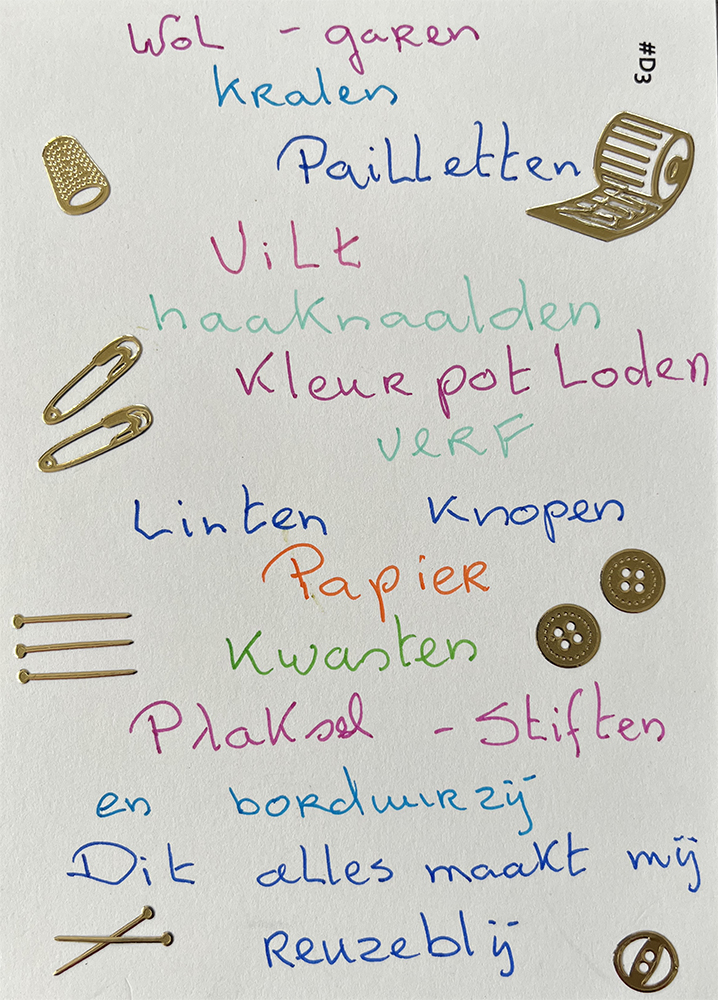 Wol - garen
#D3
Kralen
Pailletten
Vilt
haaknaalden
Kleur potloden
verf
Linten Knopen
Papier
Kwasten
Plaksel - Stiften
en borduurzij
Dit alles maakt mij
reuzeblij